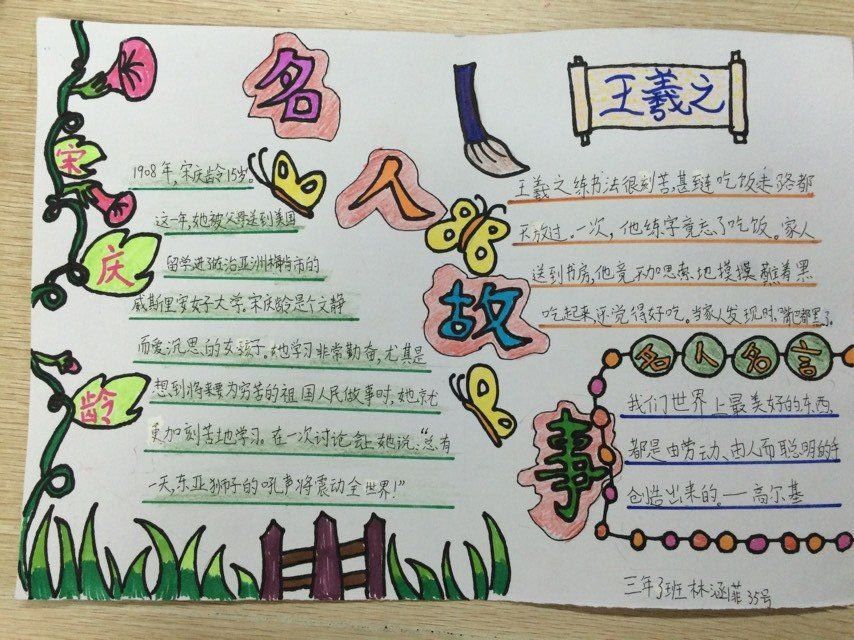 名人故事
宋庆龄
1908年,宋庆龄15岁。
这一年,她被父母送到美国
留学进佐治亚洲梅肯市的
威斯里安女子大学。宋庆龄是个文静
而爱沉思的女孩子。她学习非常勤奋。尤其是
想到将来要为穷苦的祖国人民做事时,她就
更加刻苦地学习。在一次讨论会上她说:“总有
一天,东亚狮子的吼声将震动全世界!”
王羲之
王羲之练书法很刻苦,甚至连吃饭走路都
不放过。一次,他练字竟忘了吃饭。家人
送到书房,他竟不加思索地馍馍蘸着黑
吃起来,还觉得好吃。当家人发现时,嘴巴都黑了。
名人名言
我们世界上最美好的东西,
都是由劳动、由人而聪明的手
创造出来的。——高尔基
三年3班 林涵菲 35号